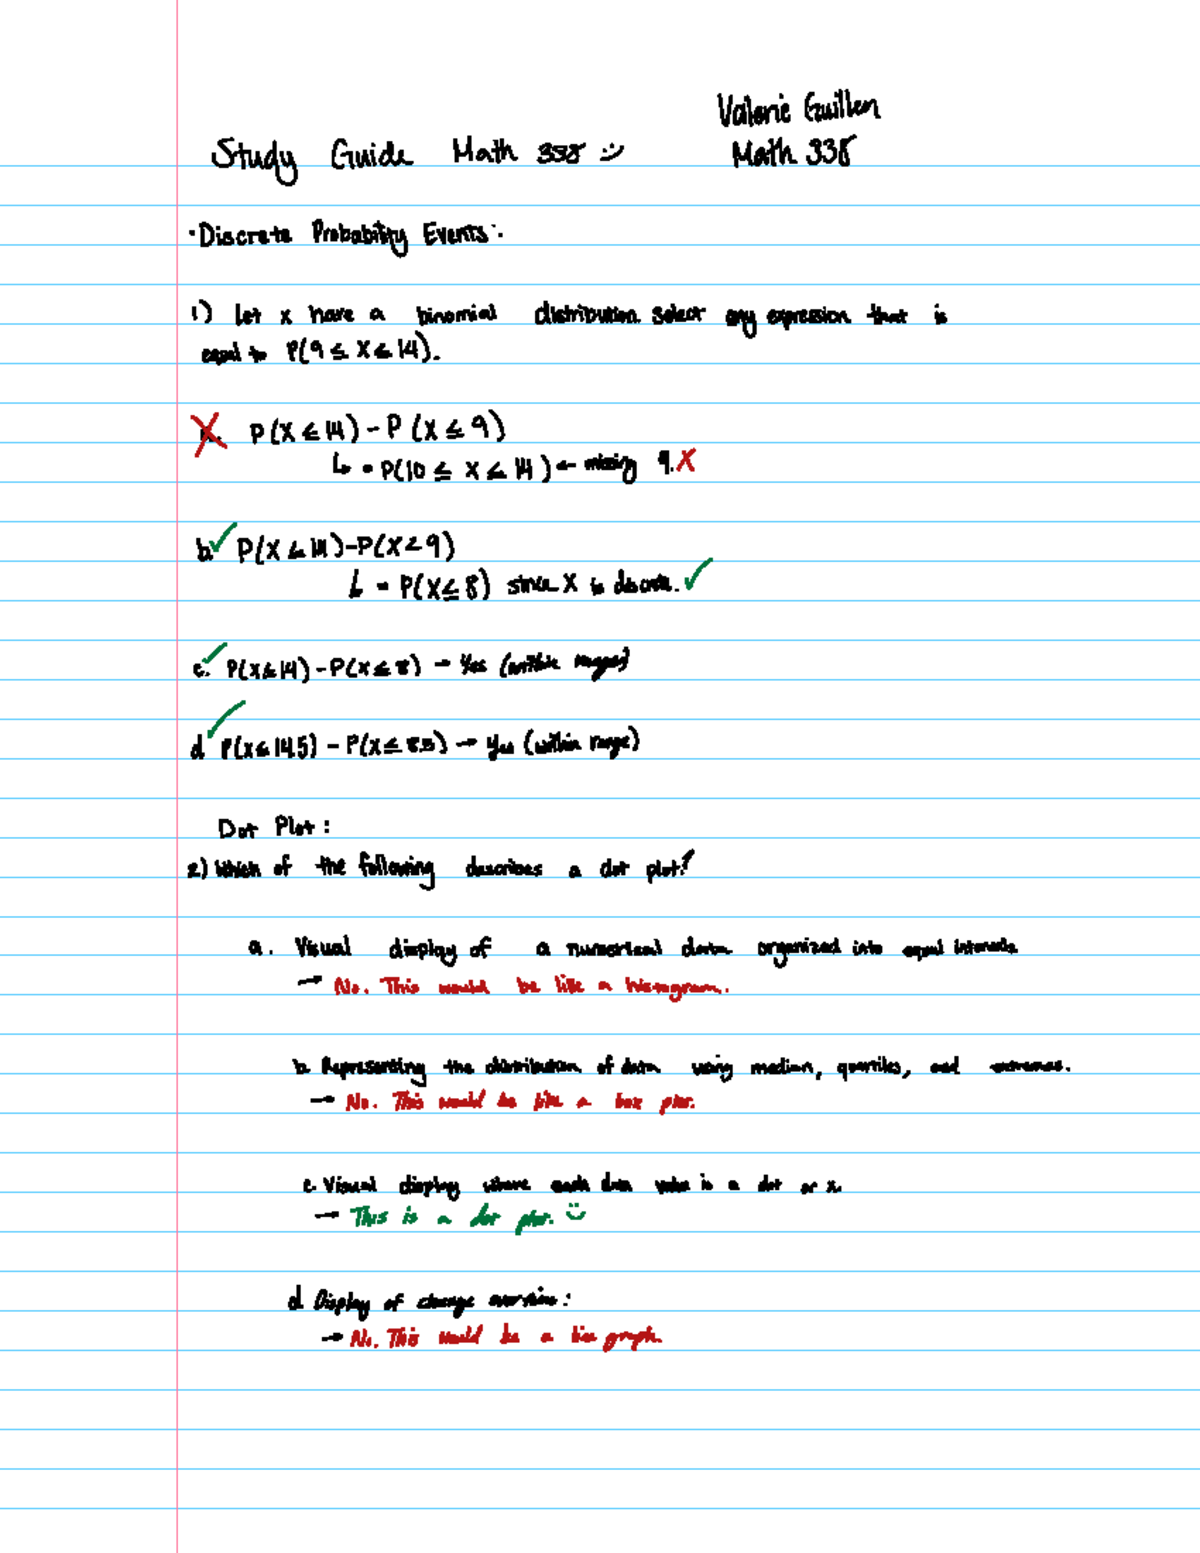 Valerie Guillen
Study Guide Math 338 :)
Math 338
· Discrete Probability Events:
1) Let x have a binomial distribution. Select any expression that is
equal to P(9 ≤ X ≤ 14).
a. P(X ≤ 14) - P(X ≤ 9)
↳ = P(10 ≤ X ≤ 14) ← missing 9. X
b. ✓ P(X ≤ 14) - P(X < 9)
↳ = P(X ≤ 8) since X is discrete. ✓
c. ✓ P(X ≤ 14) - P(X ≤ 8) → Yes (within range)
d ✓ P(X ≤ 14.5) - P(X ≤ 8.5) → Yes (within range)
Dot Plot:
2) Which of the following describes a dot plot?
a. Visual display of a numerical data organized into equal intervals
→ No. This would be like a histogram.
b. Representing the distribution of data using median, quartiles, and extremes.
→ No. This would be like a box plot.
c. Visual display where each data value is a dot or x.
→ This is a dot plot. :)
d Display of change overtime:
→ No. This would be a line graph.